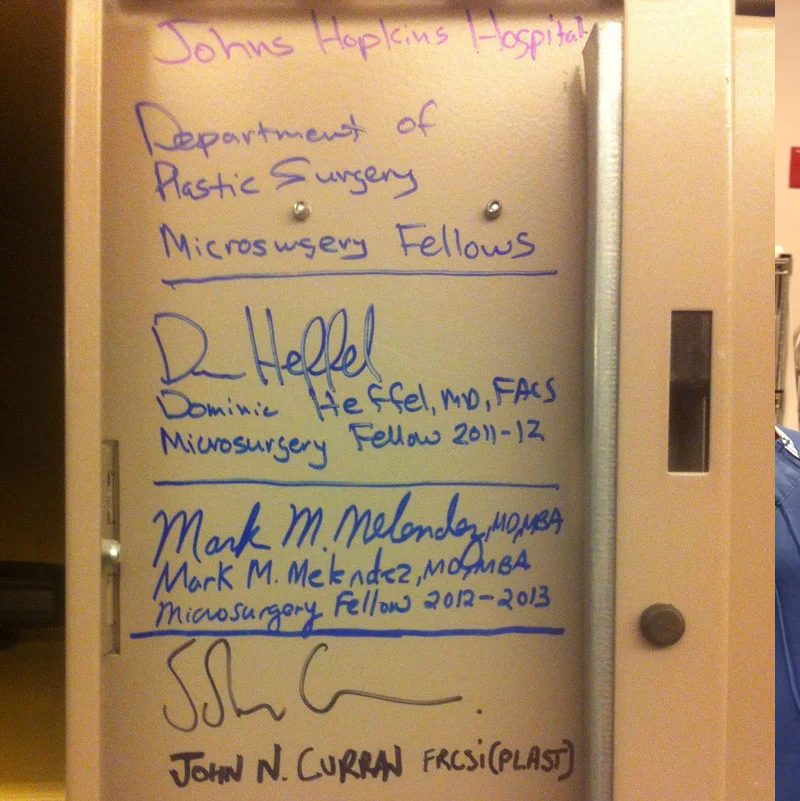 Johns Hopkins Hospital
Department of
Plastic Surgery
Microsurgery Fellows
Dom Heffel
Dominic Heffel, MD, FACS
Microsurgery Fellow 2011-12
Mark M. Melendez, MD, MBA
Mark M. Melendez, MD, MBA
Microsurgery Fellow 2012-2013
John C
JOHN N. CURRAN FRCSI(PLAST)